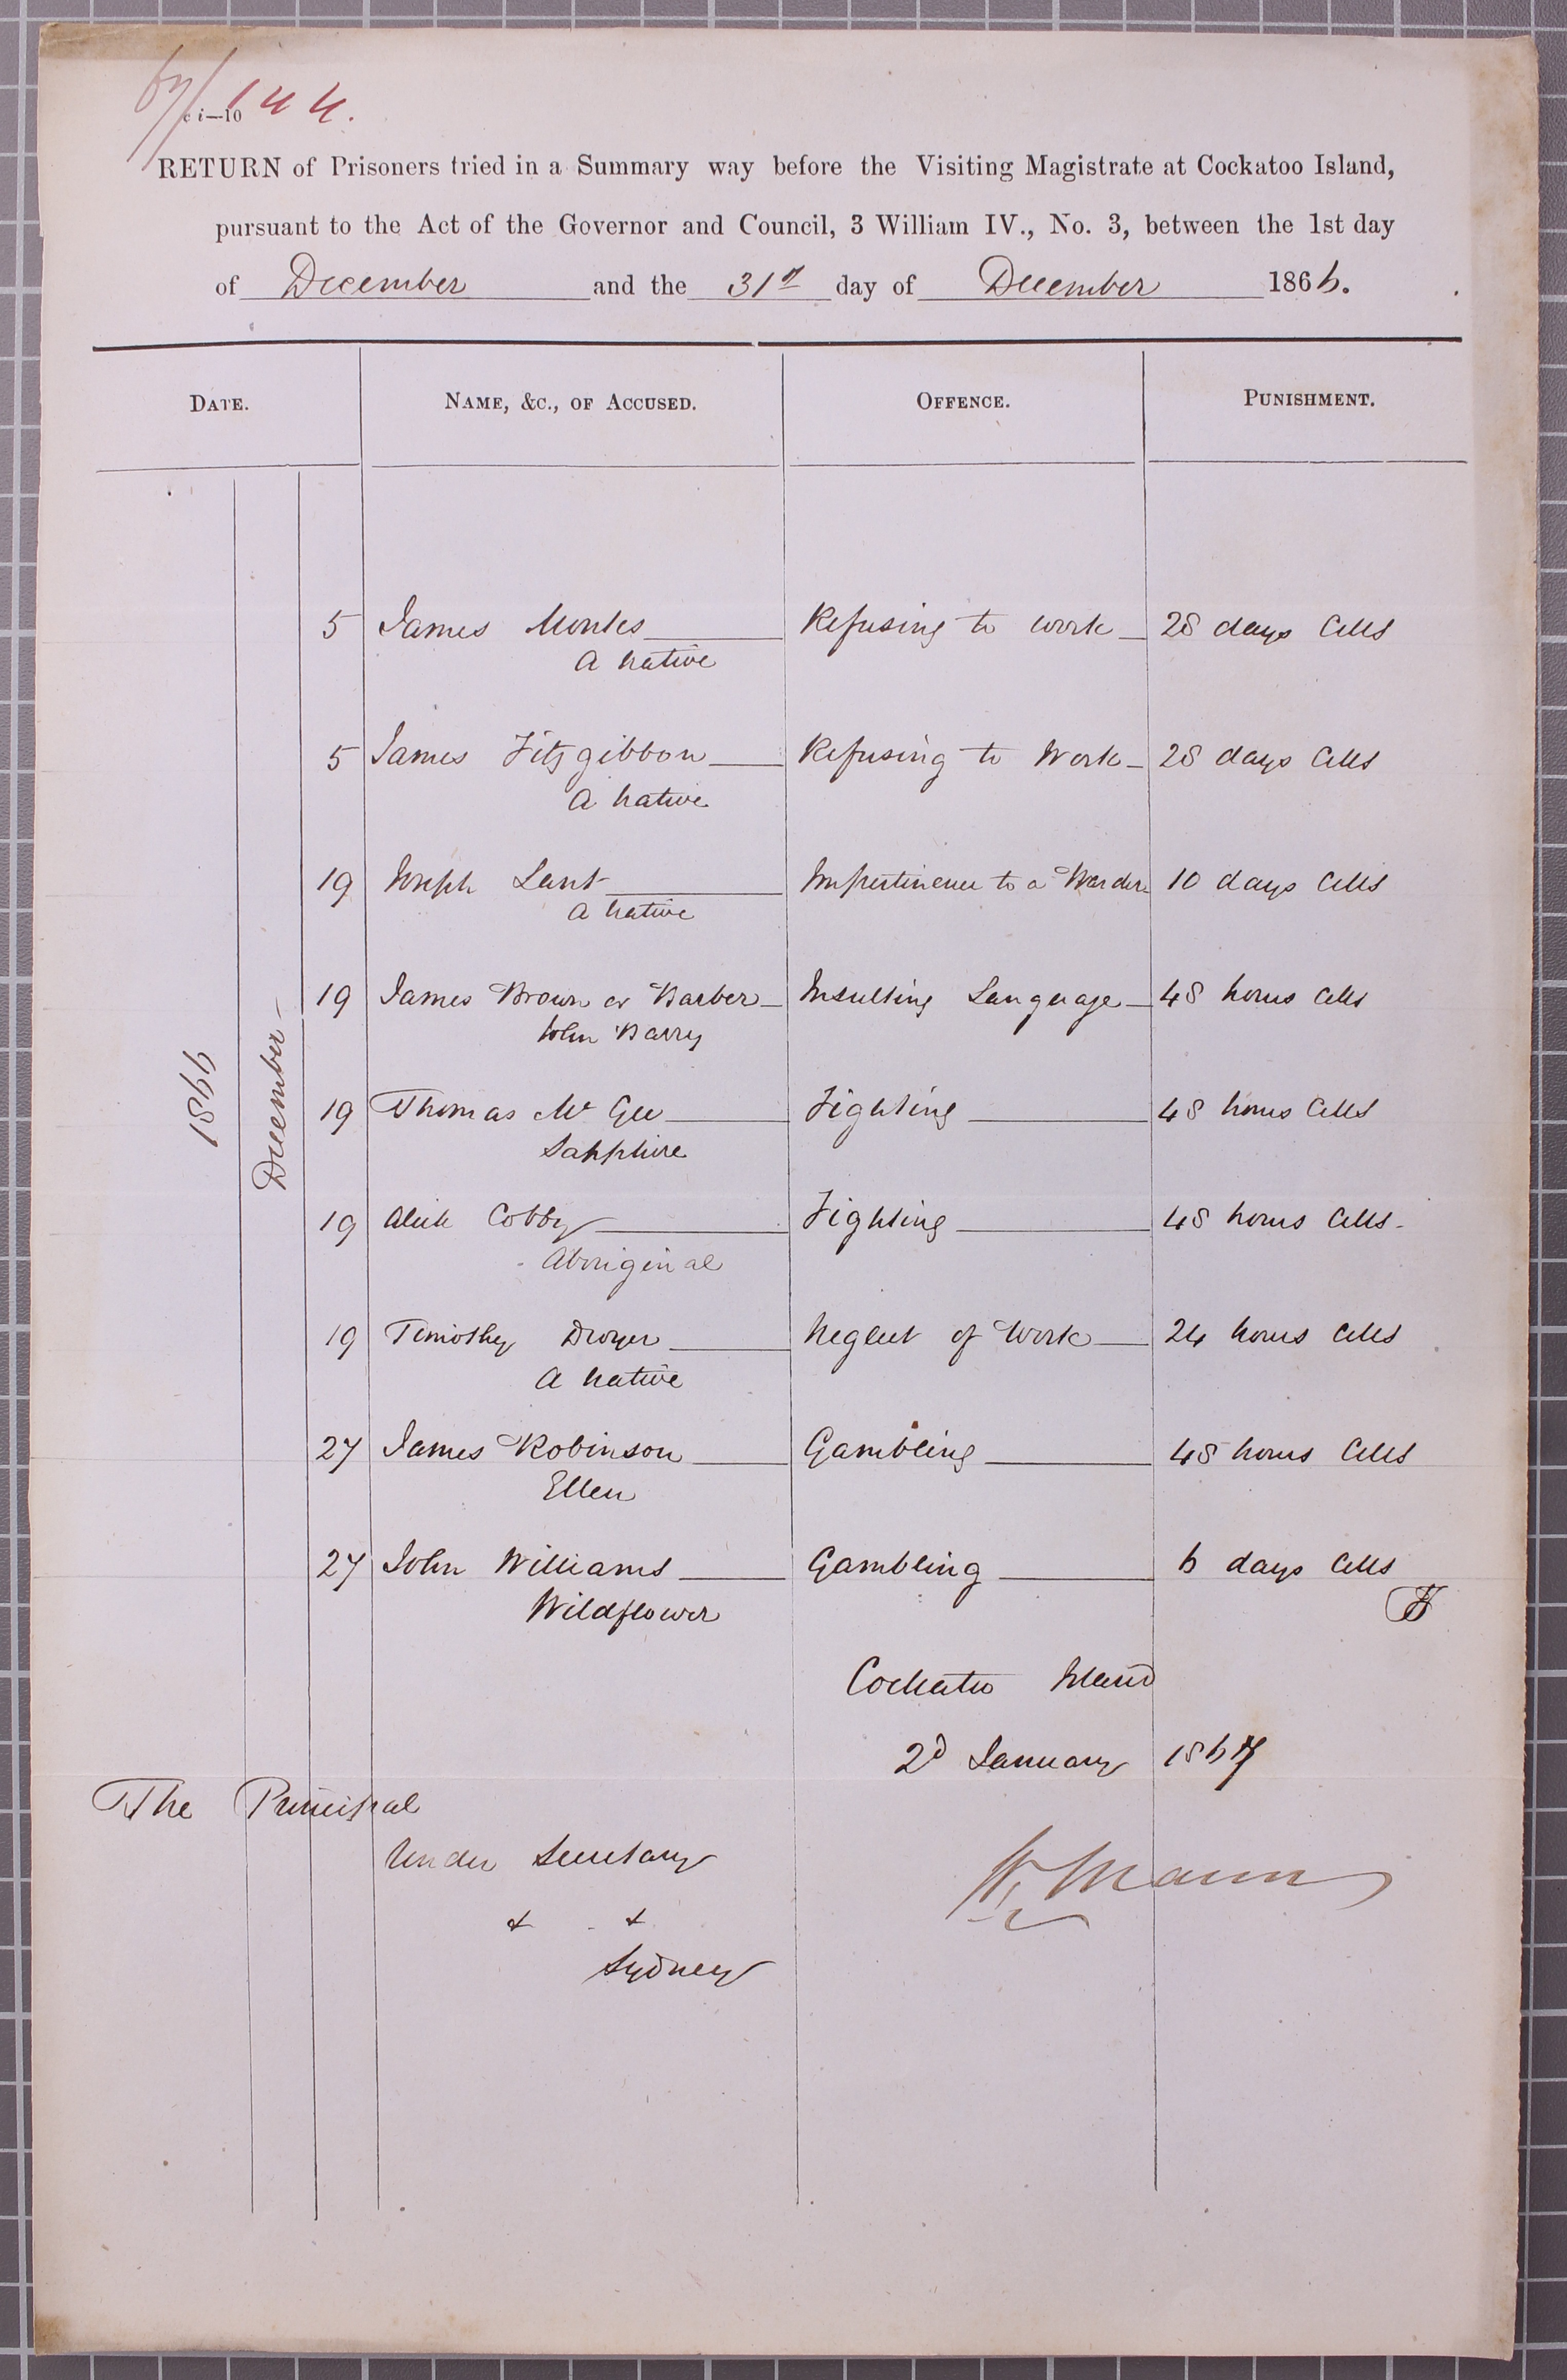 67/144.
c i—10
RETURN of Prisoners tried in a Summary way before the Visiting Magistrate at Cockatoo Island,
pursuant to the Act of the Governor and Council, 3 William IV., No. 3, between the 1st day
of December and the 31st day of December 1866.
DATE. NAME, &C., OF ACCUSED. OFFENCE. PUNISHMENT.
1866
December
5 James Monks Refusing to work 28 days Cells
A Native
5 James Fitzgibbon Refusing to Work 28 days Cells
A Native
19 Joseph Lant Impertinence to a Warder 10 days Cells
A Native
19 James Brown or Barber Insulting Language 48 hours Cells
John Barry
19 Thomas McGee Fighting 48 hours Cells
Sapphire
19 Alick Cobby Fighting 48 hours Cells
Aboriginal
19 Timothy Dwyer Neglect of Work 24 hours Cells
A Native
27 James Robinson Gambling 48 hours Cells
Ellen
27 John Williams Gambling 6 days Cells
Wildflower
Cockatoo Island
2d January 1867
The Principal
Under Secretary
& &
Sydney
Mann